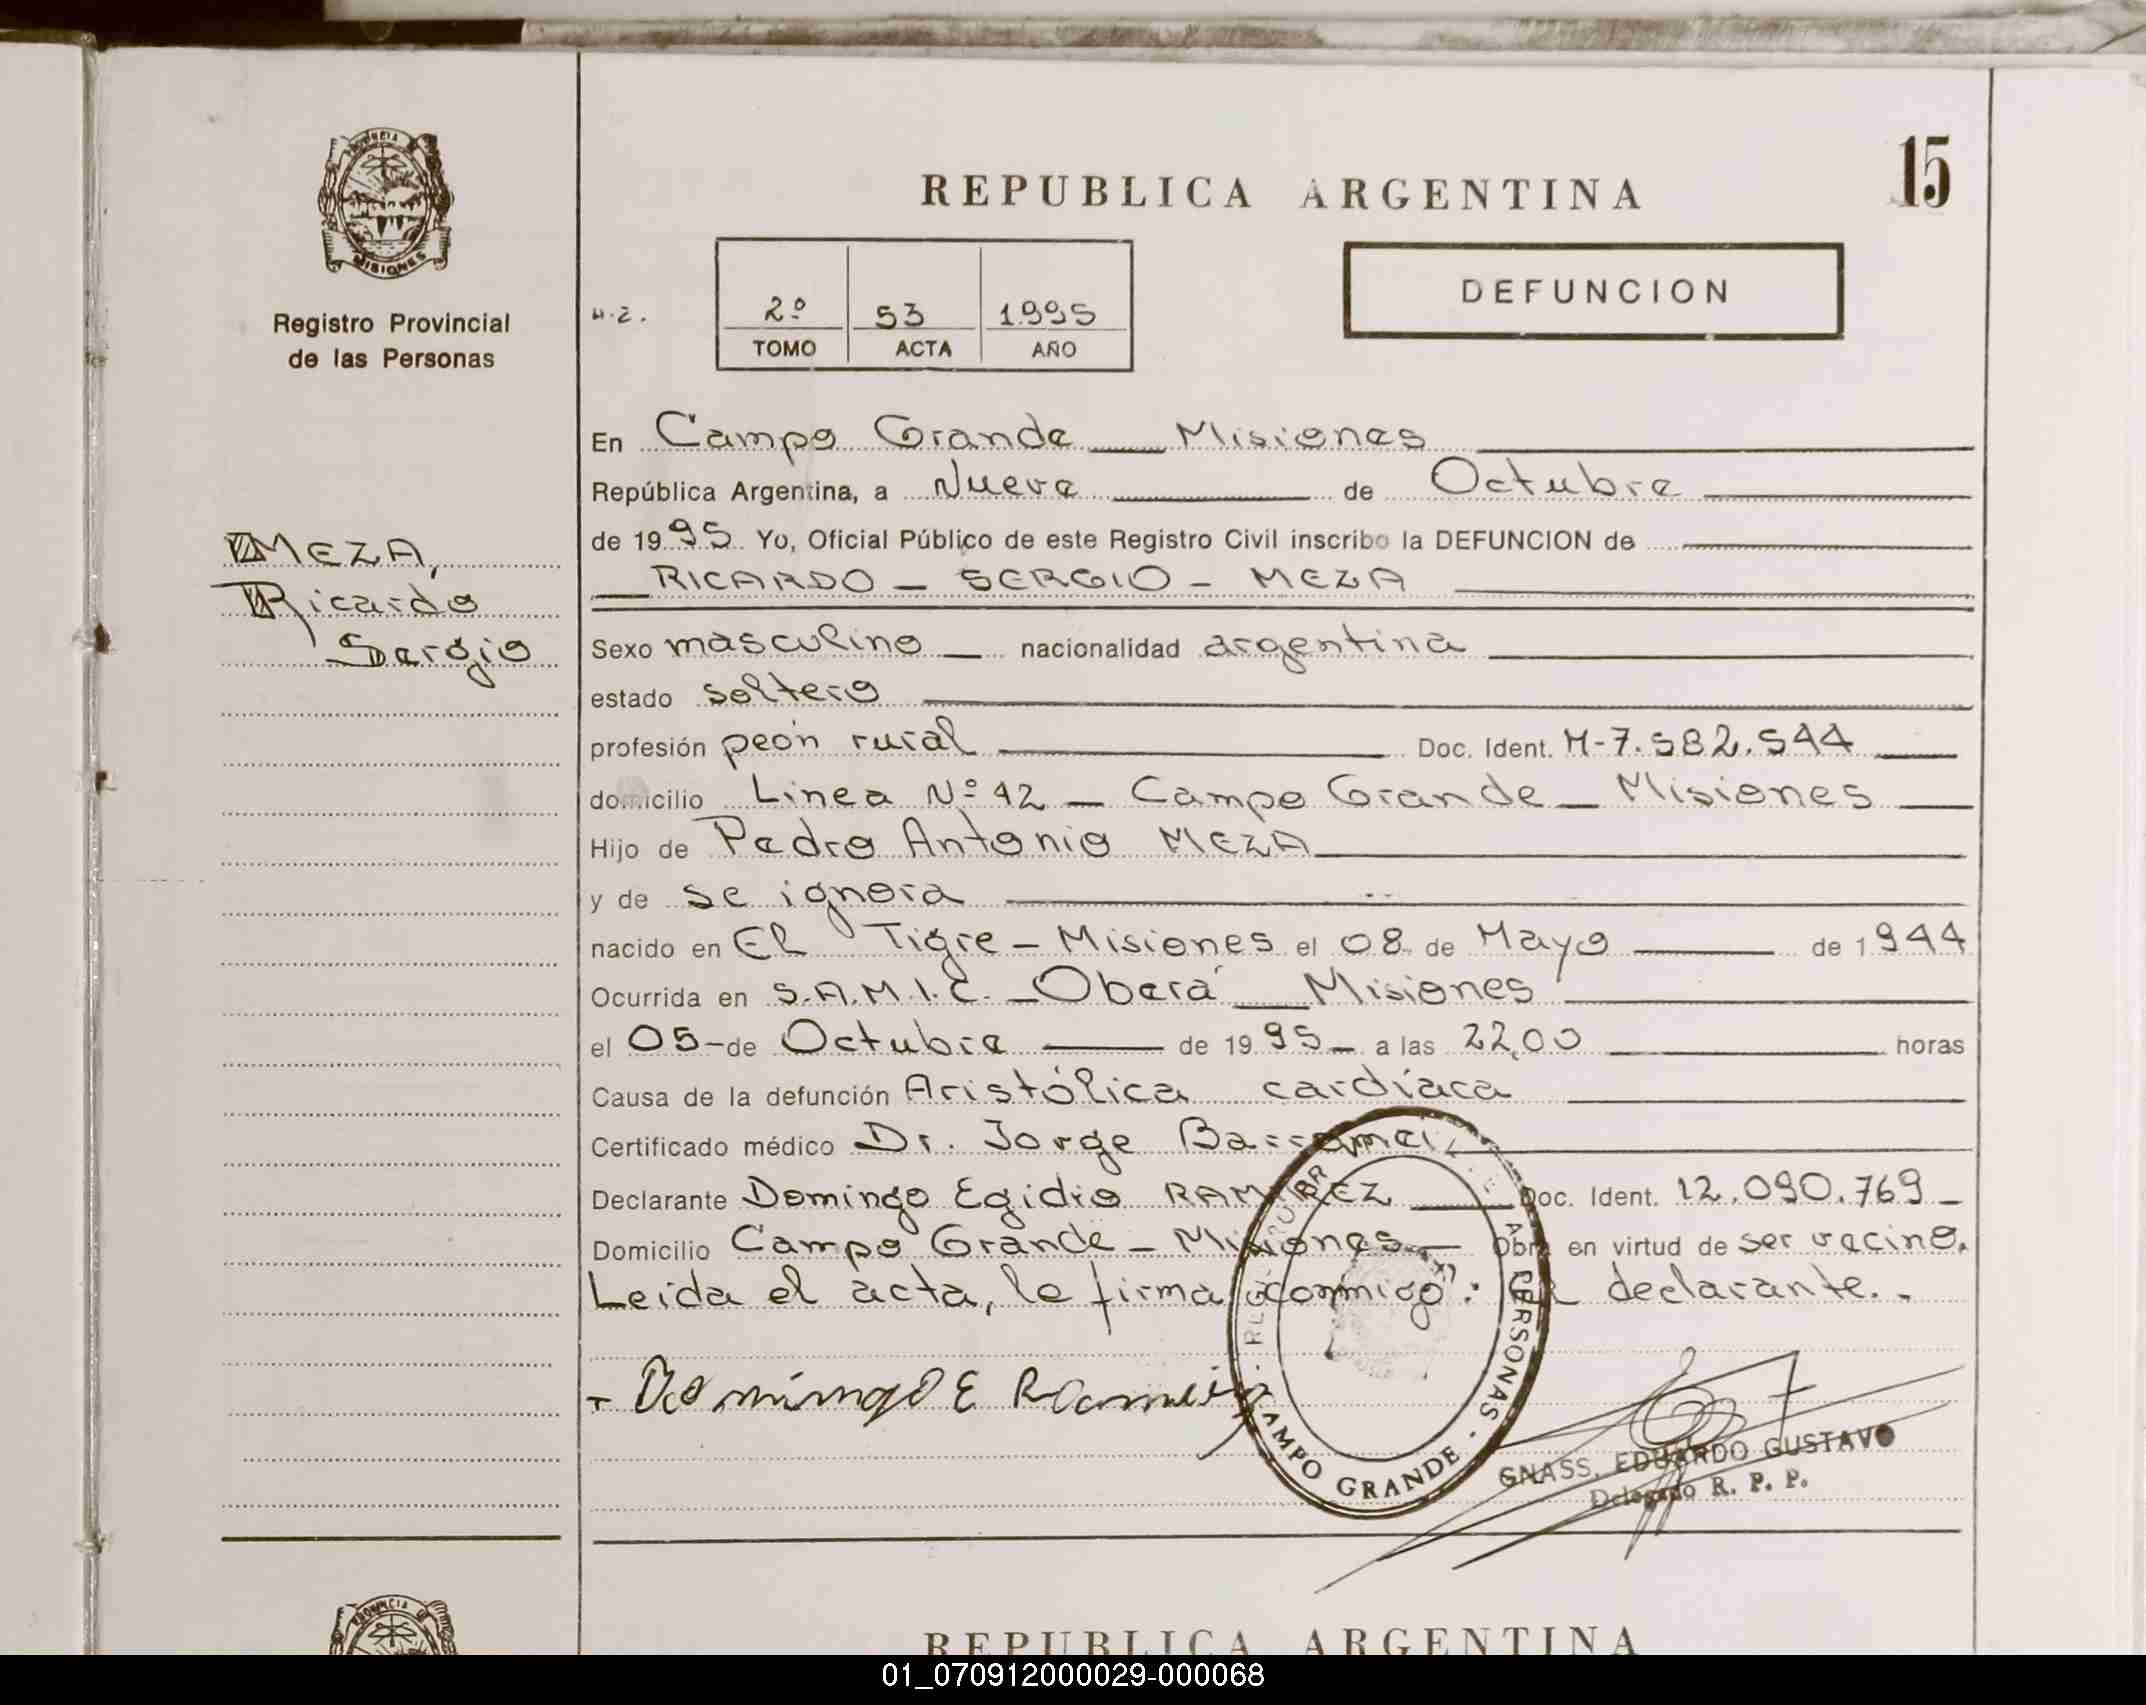 PROVINCIA
MISIONES
Registro Provincial
de las Personas
MEZA,
Ricardo
Sergio
REPUBLICA ARGENTINA
15
2º 53 1995
TOMO ACTA AÑO
DEFUNCION
En Campo Grande Misiones
República Argentina, a Nueve de Octubre
de 1995 Yo, Oficial Público de este Registro Civil inscribo la DEFUNCION de
RICARDO - SERGIO - MEZA
Sexo masculino nacionalidad argentina
estado soltero
profesión peón rural Doc. Ident. M-7.582.544
domicilio Linea Nº 12 - Campo Grande - Misiones
Hijo de Pedro Antonio MEZA
y de se ignora
nacido en El Tigre - Misiones el 08 de Mayo de 1944
Ocurrida en S.A.M.I.C. - Oberá - Misiones
el 05 - de Octubre de 1995 - a las 22,00 horas
Causa de la defunción Aristólica cardíaca
Certificado médico Dr. Jorge
Declarante Domingo Egidio RAMIREZ Doc. Ident. 12.090.769 -
Domicilio Campo Grande - Misiones - Obra en virtud de ser vecino.
Leida el acta, la firma "conmigo": el declarante. -
- Domingo E Ramirez
PERSONAS - CAMPO GRANDE -
GNASS, EDUARDO GUSTAVO
Delegado R. P. P.
PROVINCIA
REPUBLICA ARGENTINA
01_070912000029-000068